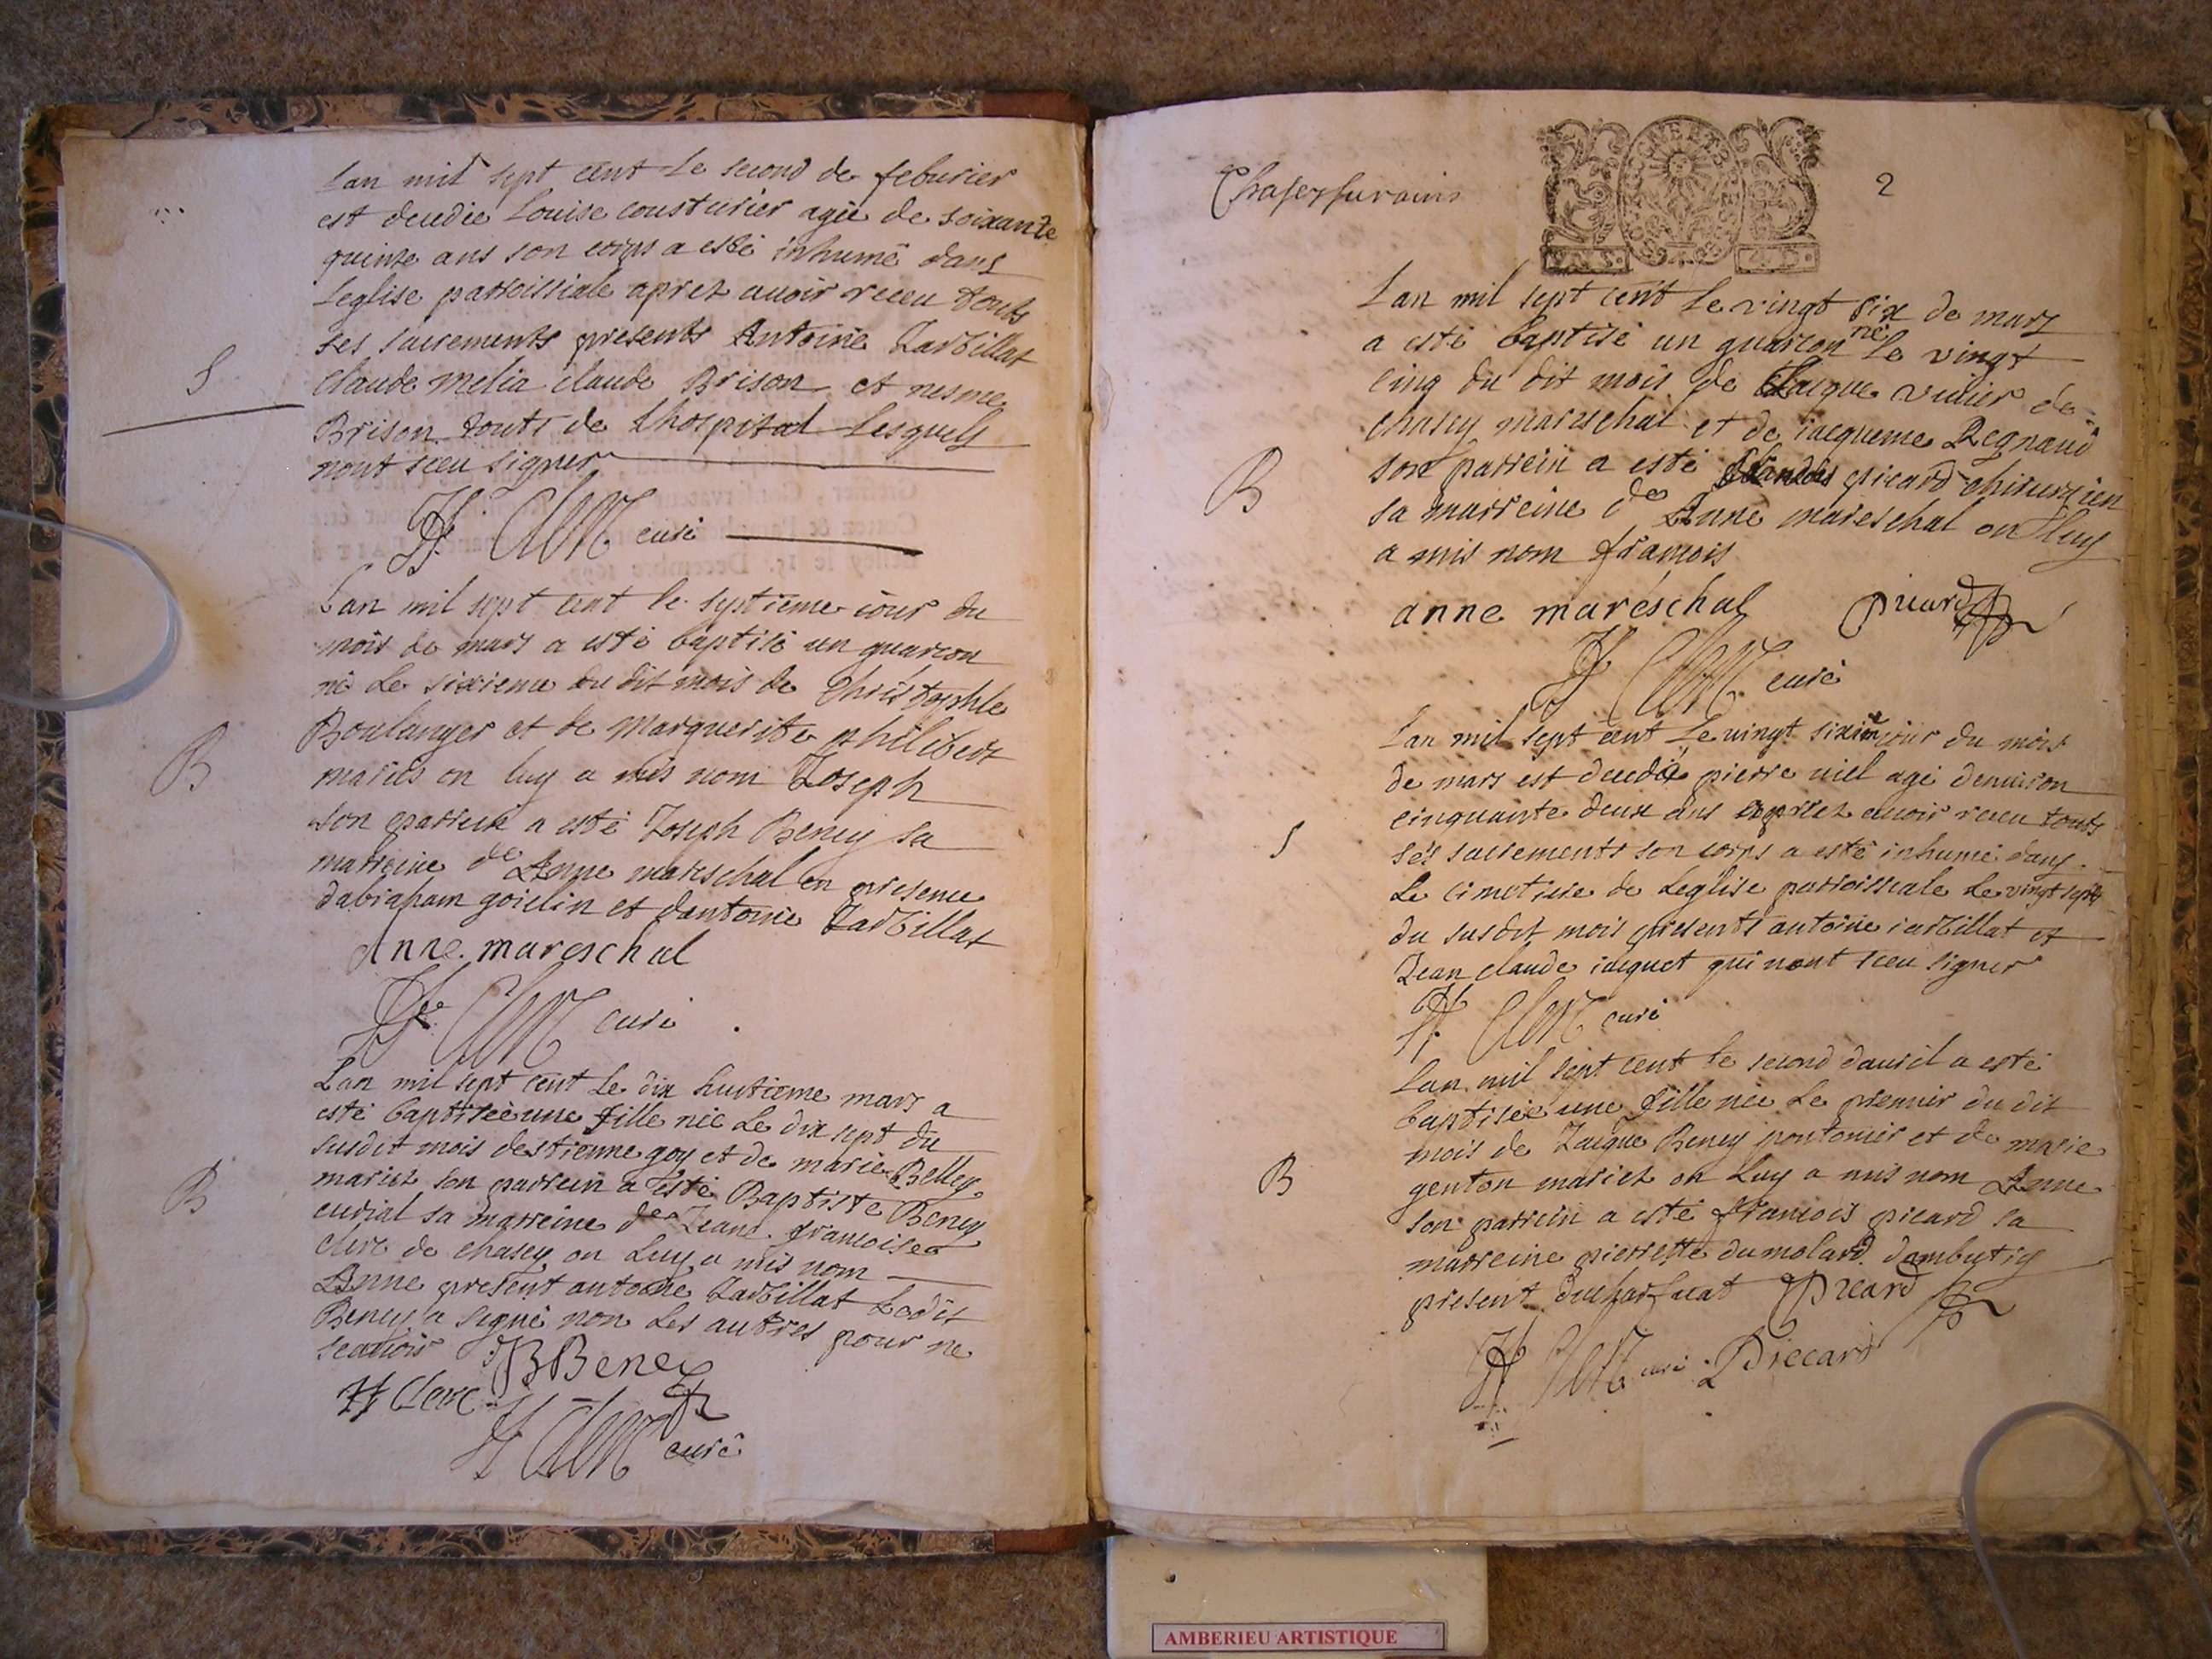 Lan mil sept cent Le second de feburier
est decedée Louise cousturier agée de soixante
quinze ans son corps a esté inhumé dans
Leglise parroissiale aprez auoir receu touts
ses sacrements presents Antoine Jarbillat
claude melia claude Brison et nesme
Brison touts de Lhospital Lesquels
nont sceu signer
S
curé
Lan mil sept cent le septieme iour du
mois de mars a esté baptisé un guarcon
né Le sixieme du dit mois de Christophle
Boulanger et de Marguerite philibert
mariés on luy a mis nom Joseph
son parrein a esté Joseph Beney sa
marreine de Anne mareschal en presence
dabraham goiclin et dantoine Jarbillat
B
Anne mareschal
curé
Lan mil sept cent Le dix huitieme mars a
esté baptisée une fille née Le dix sept du
susdit mois destienne goy et de marie Belley
mariez son parrein a esté Baptiste Beney
curial sa marreine de Jeane francoise
clerc de chasey on Luy a mis nom
Anne present antoine Jarbillat Ledit
Beney a signé non Les autres pour ne
scauoir
B
JBBeney
Clerc
curé
Chasey sur ains
2
Lan mil sept cent Le vingt six de mars
a esté baptisé un guarcon né Le vingt
cinq du dit mois de Jacque vuier de
chasey mareschal et de iacqueme Regnaud
son parrein a esté picard chirurgien
sa marreine de Anne mareschal on Luy
a mis nom francois
B
anne maréschal picard
curé
Lan mil sept cent Le vingt sixime iour du mois
de mars est decedé pierre viel agé denuiron
cinquante deux ans aprez auoir receu touts
ses sacrements son corps a esté inhumé dans
Le cimetiere de Leglise parroissiale Le vingt sept
du susdit mois presents antoine iarbillat et
Jean claude iacquet qui nont sceu signer
S
curé
Lan mil sept cent le second dauril a esté
baptisée une fille née Le premier du dit
mois de Jacque Beney pontonier et de marie
genton mariez on Luy a mis nom Anne
son parrein a esté francois picard sa
marreine pierrette dumolard
present Picard
B
curé Piccard
AMBERIEU ARTISTIQUE